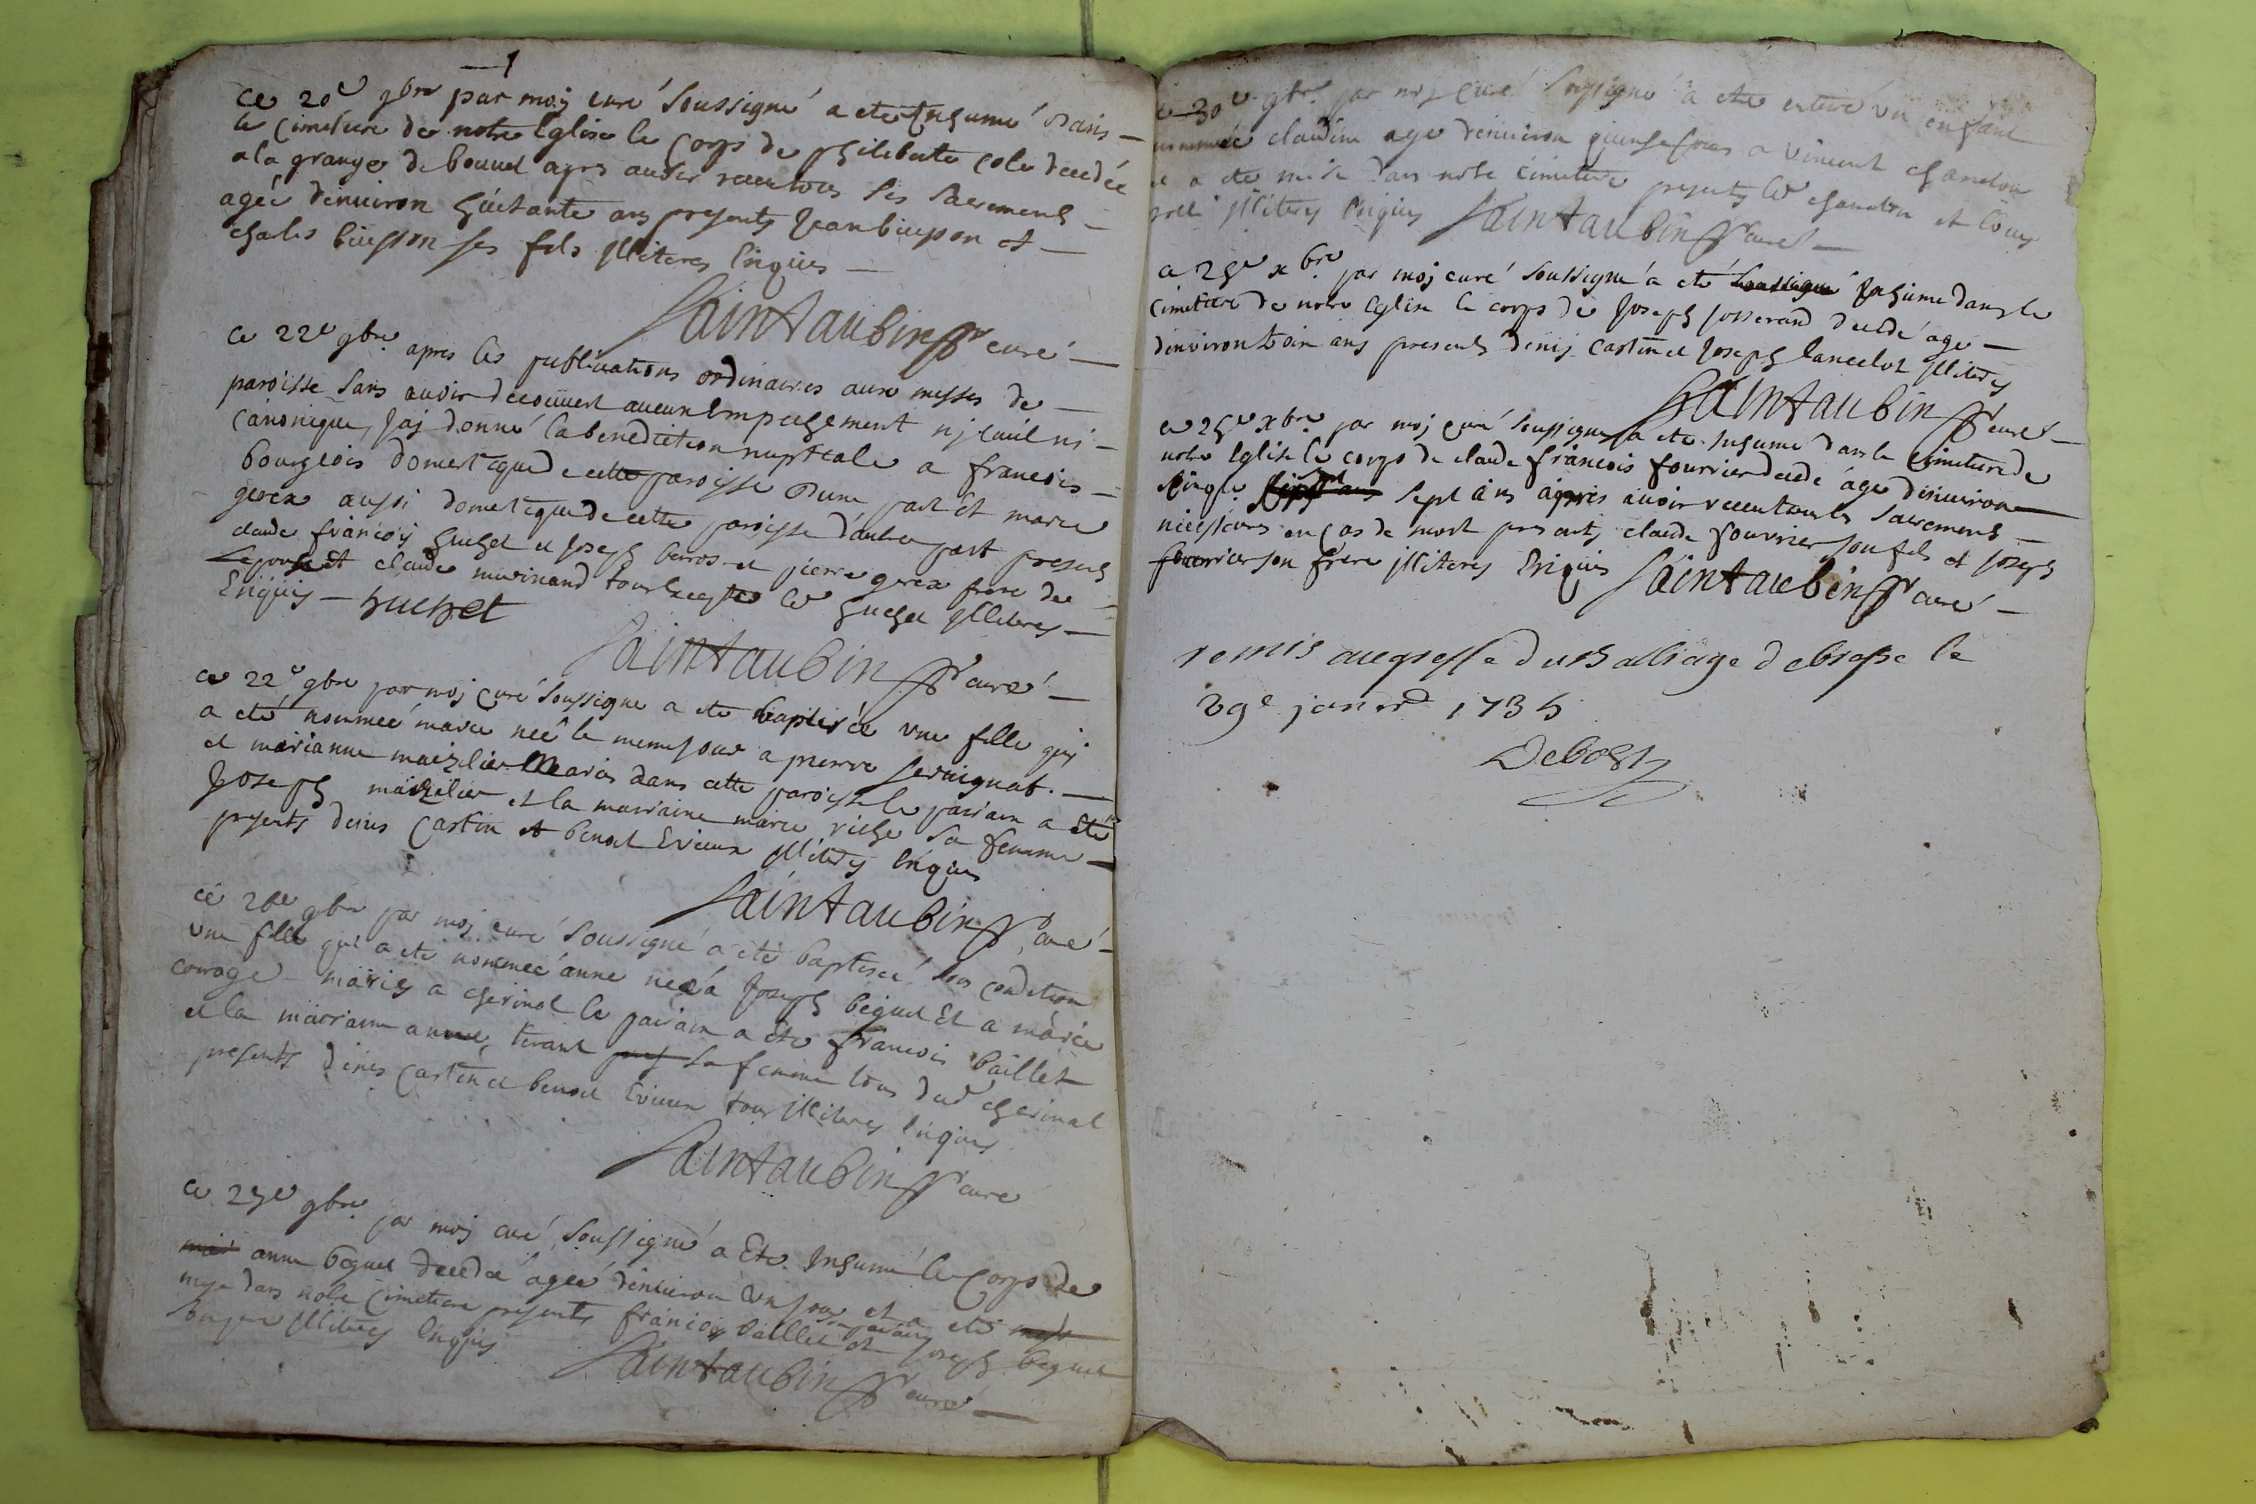 ce 20e 9bre par moy curé soussigné a ete Inhumé dans
le cimetiere de notre Eglise le corps de philiberte cole decedée
a la grange de bouuel apres auoir receu tous ses sacrements
ageé denuiron huitante ans presents jean buisson et
charles buisson ses fils jlliteres Enquis
Saintaubin ptr curé
ce 22e 9bre apres les publications ordinaires aux messes de
paroisse sans auoir decouuert aucun Empechement nj ciuil ni
canonique, jaj donné la benediction nuptiale a francois
bourgeois domestique de cette paroisse dune part Et marie
gerex aussi domestique de cette paroisse dautre part presents
claude francois huchet et joseph et pierre gerex frere de
Lepouse et claude tous Exepté led huchet jlliteres
Enquis huchet
Saintaubin ptr curé
ce 22e 9bre par moj curé soussigné a ete baptisée une fille qui
a eté nommeé marie neé le meme jour a pierre seruignat
et marianne maizelier Mariés dans cette paroisse le pairain a Eté
joseph maizelier et la marraine marie riche sa femme
presents denis castin et benoit Evieux jlliterés Enquis
Saintaubin ptr curé
ce 26e 9bre par moj curé soussigné a eté baptiseé sous condition
une fille qui a eté nommeé anne neé a joseph beguet Et a marie
courage mariés a cherinal le pairain a Ete francois baillet
et la marraine anne tirant sa femme tous dud cherinal
presents denis castin et benoit Evieux tous jlliteres Enquis
Saintaubin ptr curé
ce 27e 9bre par moj curé soussigné a Ete Inhumé le corps de
anne beguet decedeé ageé denuiron un jour et a eté
mise dans notre cimetiere presents francois baillet son pairain et joseph beguet
son pere jlliterés Enquis
Saintaubin ptr curé
ce 30e 9bre par moj curé soussigné a ete enterré un enfant
nommée claudine age denuiron quinse jours a vincent chanelon
et a ete mise dans notre cimetiere presents led chanelon et
jlliterés Enquis Saintaubin ptr curé
ce 25e xbre par moj curé soussigné a eté soussigné Inhumé dans le
cimetiere de notre Eglise le corps de joseph josserand decedé age
denuiron trois ans presents denis castin et joseph lancelot jlliterés
Saintaubin ptr curé
ce 25e xbre par moj curé soussigné a ete Inhumé dans le cimetiere de
notre Eglise le corps de claude francois fourrier decedé agé denuiron
cinqte sept ans apres auoir receu tous les sacrements
necessaires en cas de mort presents claude fourrier son fils et joseph
fourrier son frere jlliteres Enquis Saintaubin ptr curé
remis au greffe du balliage de bresse le
29e janvr 1735
Debost